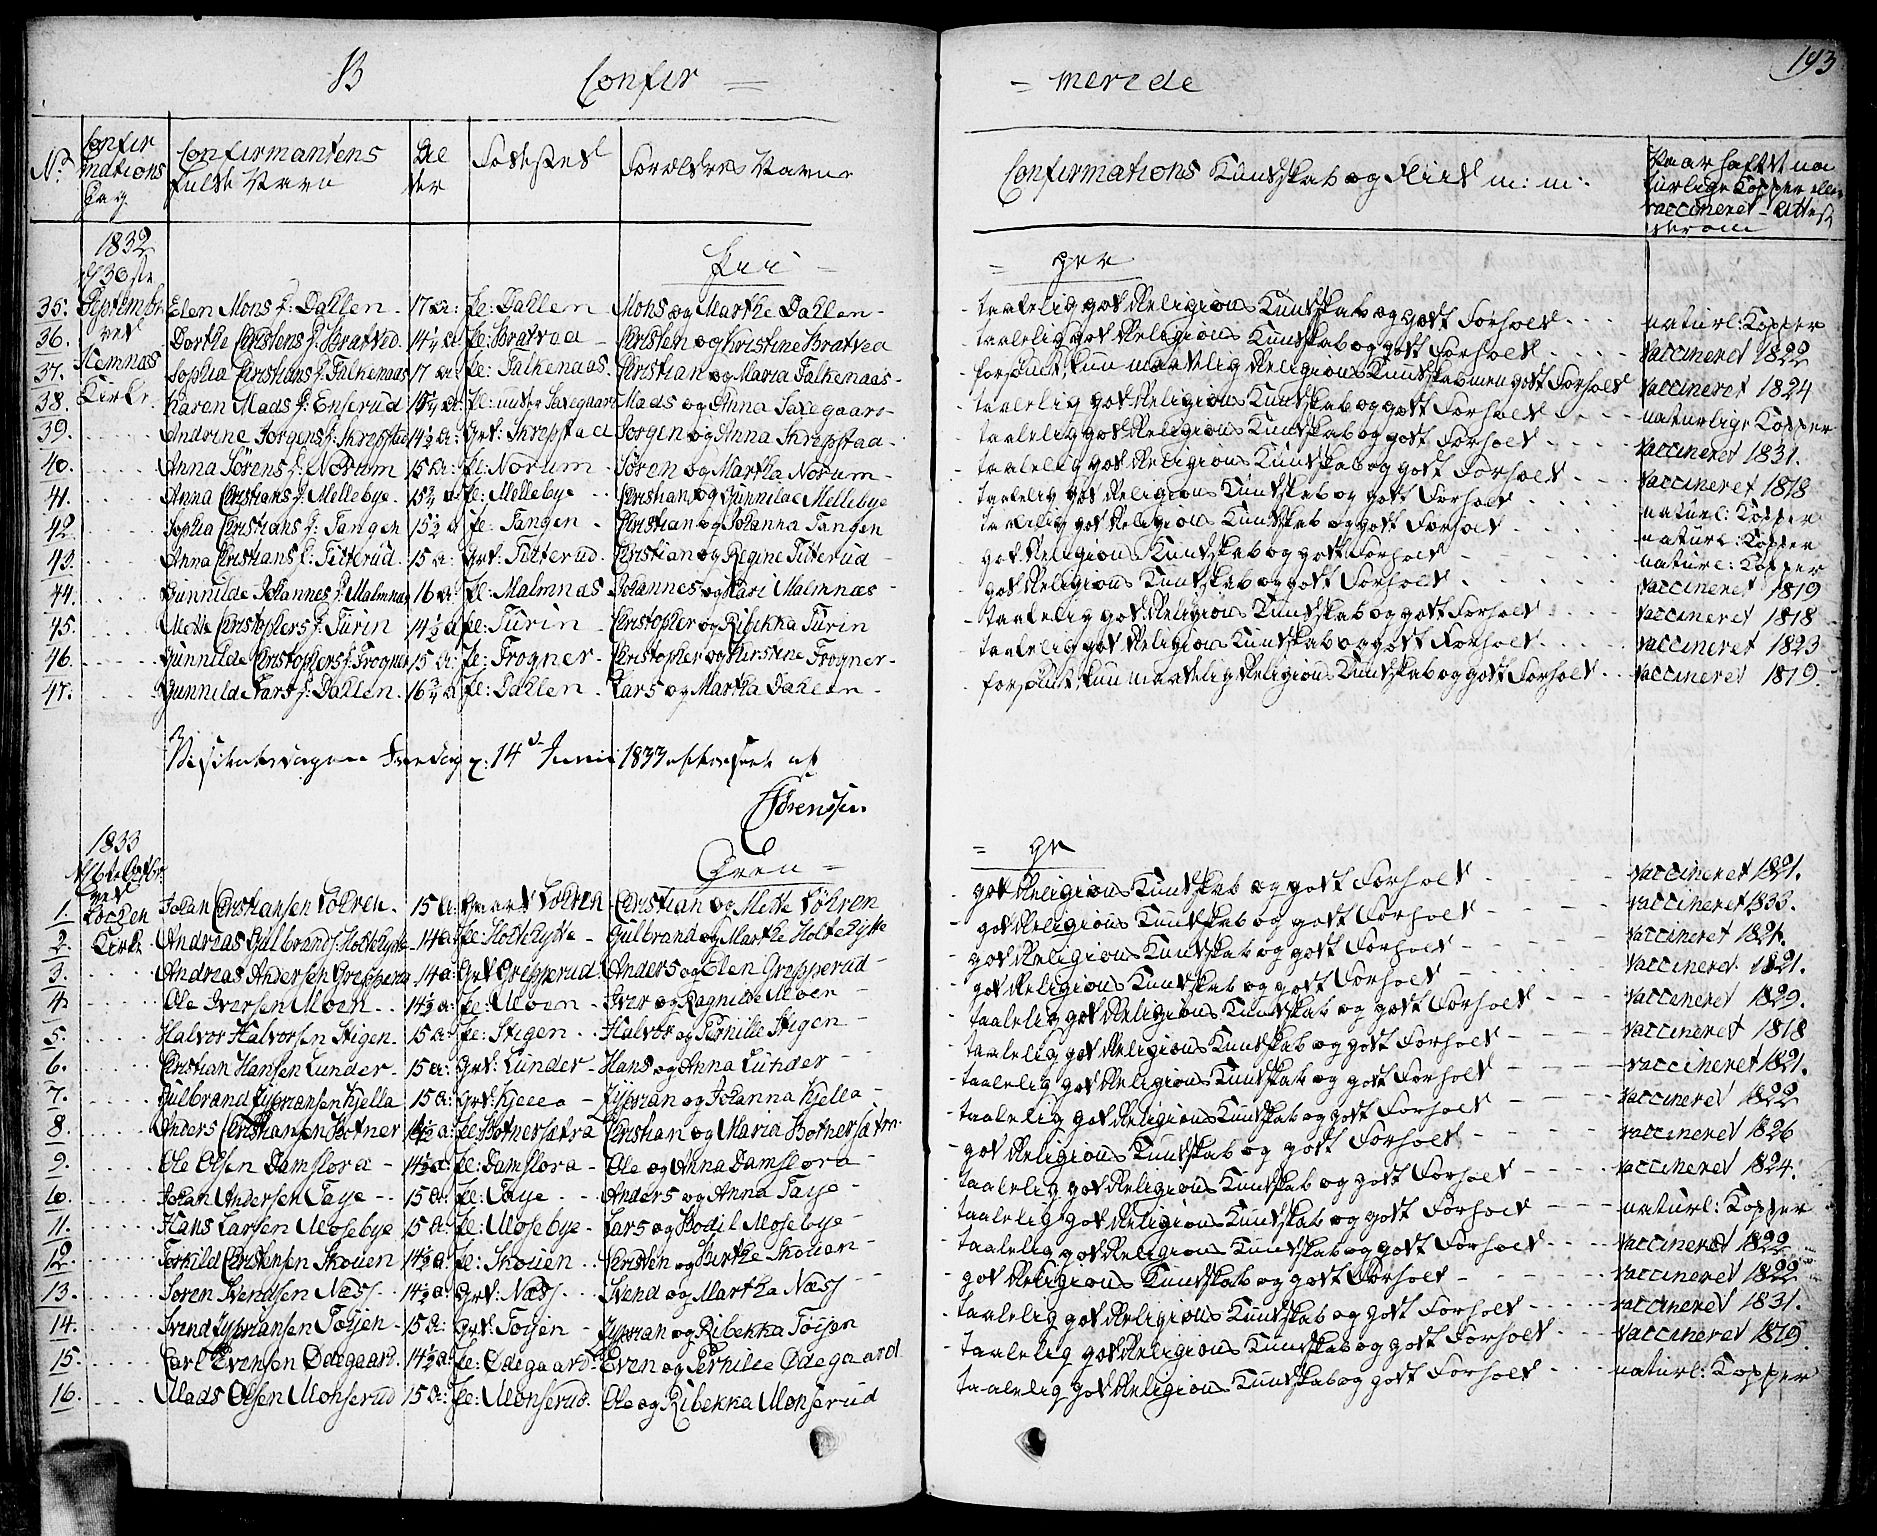 B Confir = = merede 193
No. Confirmations Dag Confirmantens fulde Navn Alder Fødested Forældres Navne Confirmations Kundskab og Fliid m: m: Naar hafte naturlige Kopper eller vaccineret - Attest derom
1832 d/30ste Septembr. ved Hemnæs Kirke
Pii = = ger
35. Elen Mons d: Dahlen - 17 A: Pl: Dahlem Mons og Marthe Dahlen - taalelig god Religions Kundskab og godt Forhold - naturl: Kopper
36. Dorthe Christens d: Bratved 14½ A Pl: Bratvea - Christen og Christine Bratvea - taalelig god Religions Kundskab og godt Forhold - vaccineret 1822
37. Sophia Christians d: Falkenaas 17 A: Pl: Falkenaas. Christian og Maria Falkenaas - forsømt, kun maadelig Religions Kundskab men godt Forhold vaccineret 1824
38. Karen Mads d: Enserud Mads og Anna Saxegaard - taalelig god Religions Kundskab og godt Forhold - naturlige Kopper
39. Andrine Jørgens d: Skrepstad 14½ A: Grd: Skrepstad Jørgen og Anna Skrepstad - taalelig god Religions Kundskab og godt Forhold - vaccineret 1831.
40. Anna Sørens d: Norum 15 A: Pl: Norum - Søren og Martha Norum - taalelig god Religions Kundskab og godt Forhold - vaccineret 1818
41. Anna Christians d: Mellebye 15½ A Pl: Mellebye - Christian og Gunnilde Mellebye taalelig god Religions Kundskab og godt Forhold - naturl: Kopper
42. Sophia Christians d: Tangen 15½ A Pl: Tangen - Christian og Johanna Tangen taalelig god Religions Kundskab og godt Forhold - naturl: Kopper
43. Anna Christians d: Titterud 15 A: Grd: Titterud - Christian og Regine Titterud - god Religions Kundskab og godt Forhold - naturl: Kopper
44. Gunnilde Johannes d: Malmnæs 16 A: Pl: Malmnæs Johannes og Kari Malmnæs - god Religions Kundskab og godt Forhold - vaccineret 1819
45. Mette Christophers d: Turin 14½ A Pl: Turin - Christopher og Ribikka Turin - taalelig god Religions Kundskab og godt Forhold - vaccineret 1818
46. Gunnilde Christophers d: Frogner 15 A: Pl: Frogner - Christopher og Kirstine Frogner - taalelig god Religions Kundskab og godt Forhold - vaccineret 1823
47. Gunnilde Lars d: Dahlen - 16¾ A Pl: Dahlen - Lars og Martha Dahlen - forsømt, kun maadelig Religions Kundskab og godt Forhold - vaccineret 1819.
Visitatsdagen Fredag d: 14de Junii 1833 efterseet af
Sørenssen
1833 ved Kirke
Dren = = ge
1. Johan Christiansen Løkren - 15 A: Gaard Løkren - Christian og Mette Løkren - god Religions Kundskab og godt Forhold - vaccineret 1821.
2. Andreas Gulbrands: Holtehytte - 14 A: Pl: Holtehytte - Gulbrand og Marthe Holtehytte - god Religions Kundskab og godt Forhold - vaccineret 1833.
3. Andreas Andersen Grepperud 14 A: Grd Grepperud. Anders og Elen Grepperud - god Religions Kundskab og godt Forhold - vaccineret 1821.
4. Ole Iversen Moen - 14½ A: Pl: Moen - Iver og Ragnilde Moen - god Religions Kundskab og godt Forhold - vaccineret 1821.
5. Halvor Halvorsen Stigen - 15 A: Pl: Stigen - Halvor og Pernille Stigen - taalelig god Religions Kundskab og godt Forhold - vaccineret 1829.
6. Christian Hansen Lunder - 15 A: Grd: Lunder - Hans og Anna Lunder - taalelig god Religions Kundskab og godt Forhold - vaccineret 1818
7. Gulbrand Zypriansen Kjella 15 A: Grd: Kjella - Zyprian og Johanna Kjella - taalelig god Religions Kundskab og godt Forhold - vaccineret 1821.
8. Anders Christiansen Botner 14½ A: Pl: Botnersætra Christian og Maria Botnersætra - taalelig god Religions Kundskab og godt Forhold - vaccineret 1822
9. Ole Olsen Damslora - 14½ A: Pl: Damslora - Ole og Anna Damslora - god Religions Kundskab og godt Forhold - vaccineret 1826
10. Johan Andersen Taje - 15 A: Pl: Taje - Anders og Anna Taje - taalelig god Religions Kundskab og godt Forhold - vaccineret 1824.
11. Hans Larsen Mosebye 15 A: Pl: Mosebye - Lars og Bodil Mosebye - taalelig god Religions Kundskab og godt Forhold - naturl: Kopper
12. Torkild Christensen Skouen 14½ A: Pl: Skouen - Christen og Birthe Skouen - taalelig god Religions Kundskab og godt Forhold - vaccineret 1822
13. Søren Svendsen Næss - 14½ A: Grd: Næss - Svend og Martha Næss - god Religions Kundskab og godt Forhold - vaccineret 1822
14. Svend Zypriansen Tøijen - 15 A: Grd: Tøijen - Zyprian og Ribekka Tøijen - taalelig god Religions Kundskab og godt Forhold - vaccineret 1831.
15. Carl Evensen Ødegaard 14½ A: Pl: Ødegaard. Even og Pernille Ødegaard - taalelig god Religions Kundskab og godt Forhold - vaccineret 1819.
16. Mads Olsen Monserud 15 A: Pl: Monserud. Ole og Ribekka Monserud - taalelig god Religions Kundskab og godt Forhold - naturl: Kopper